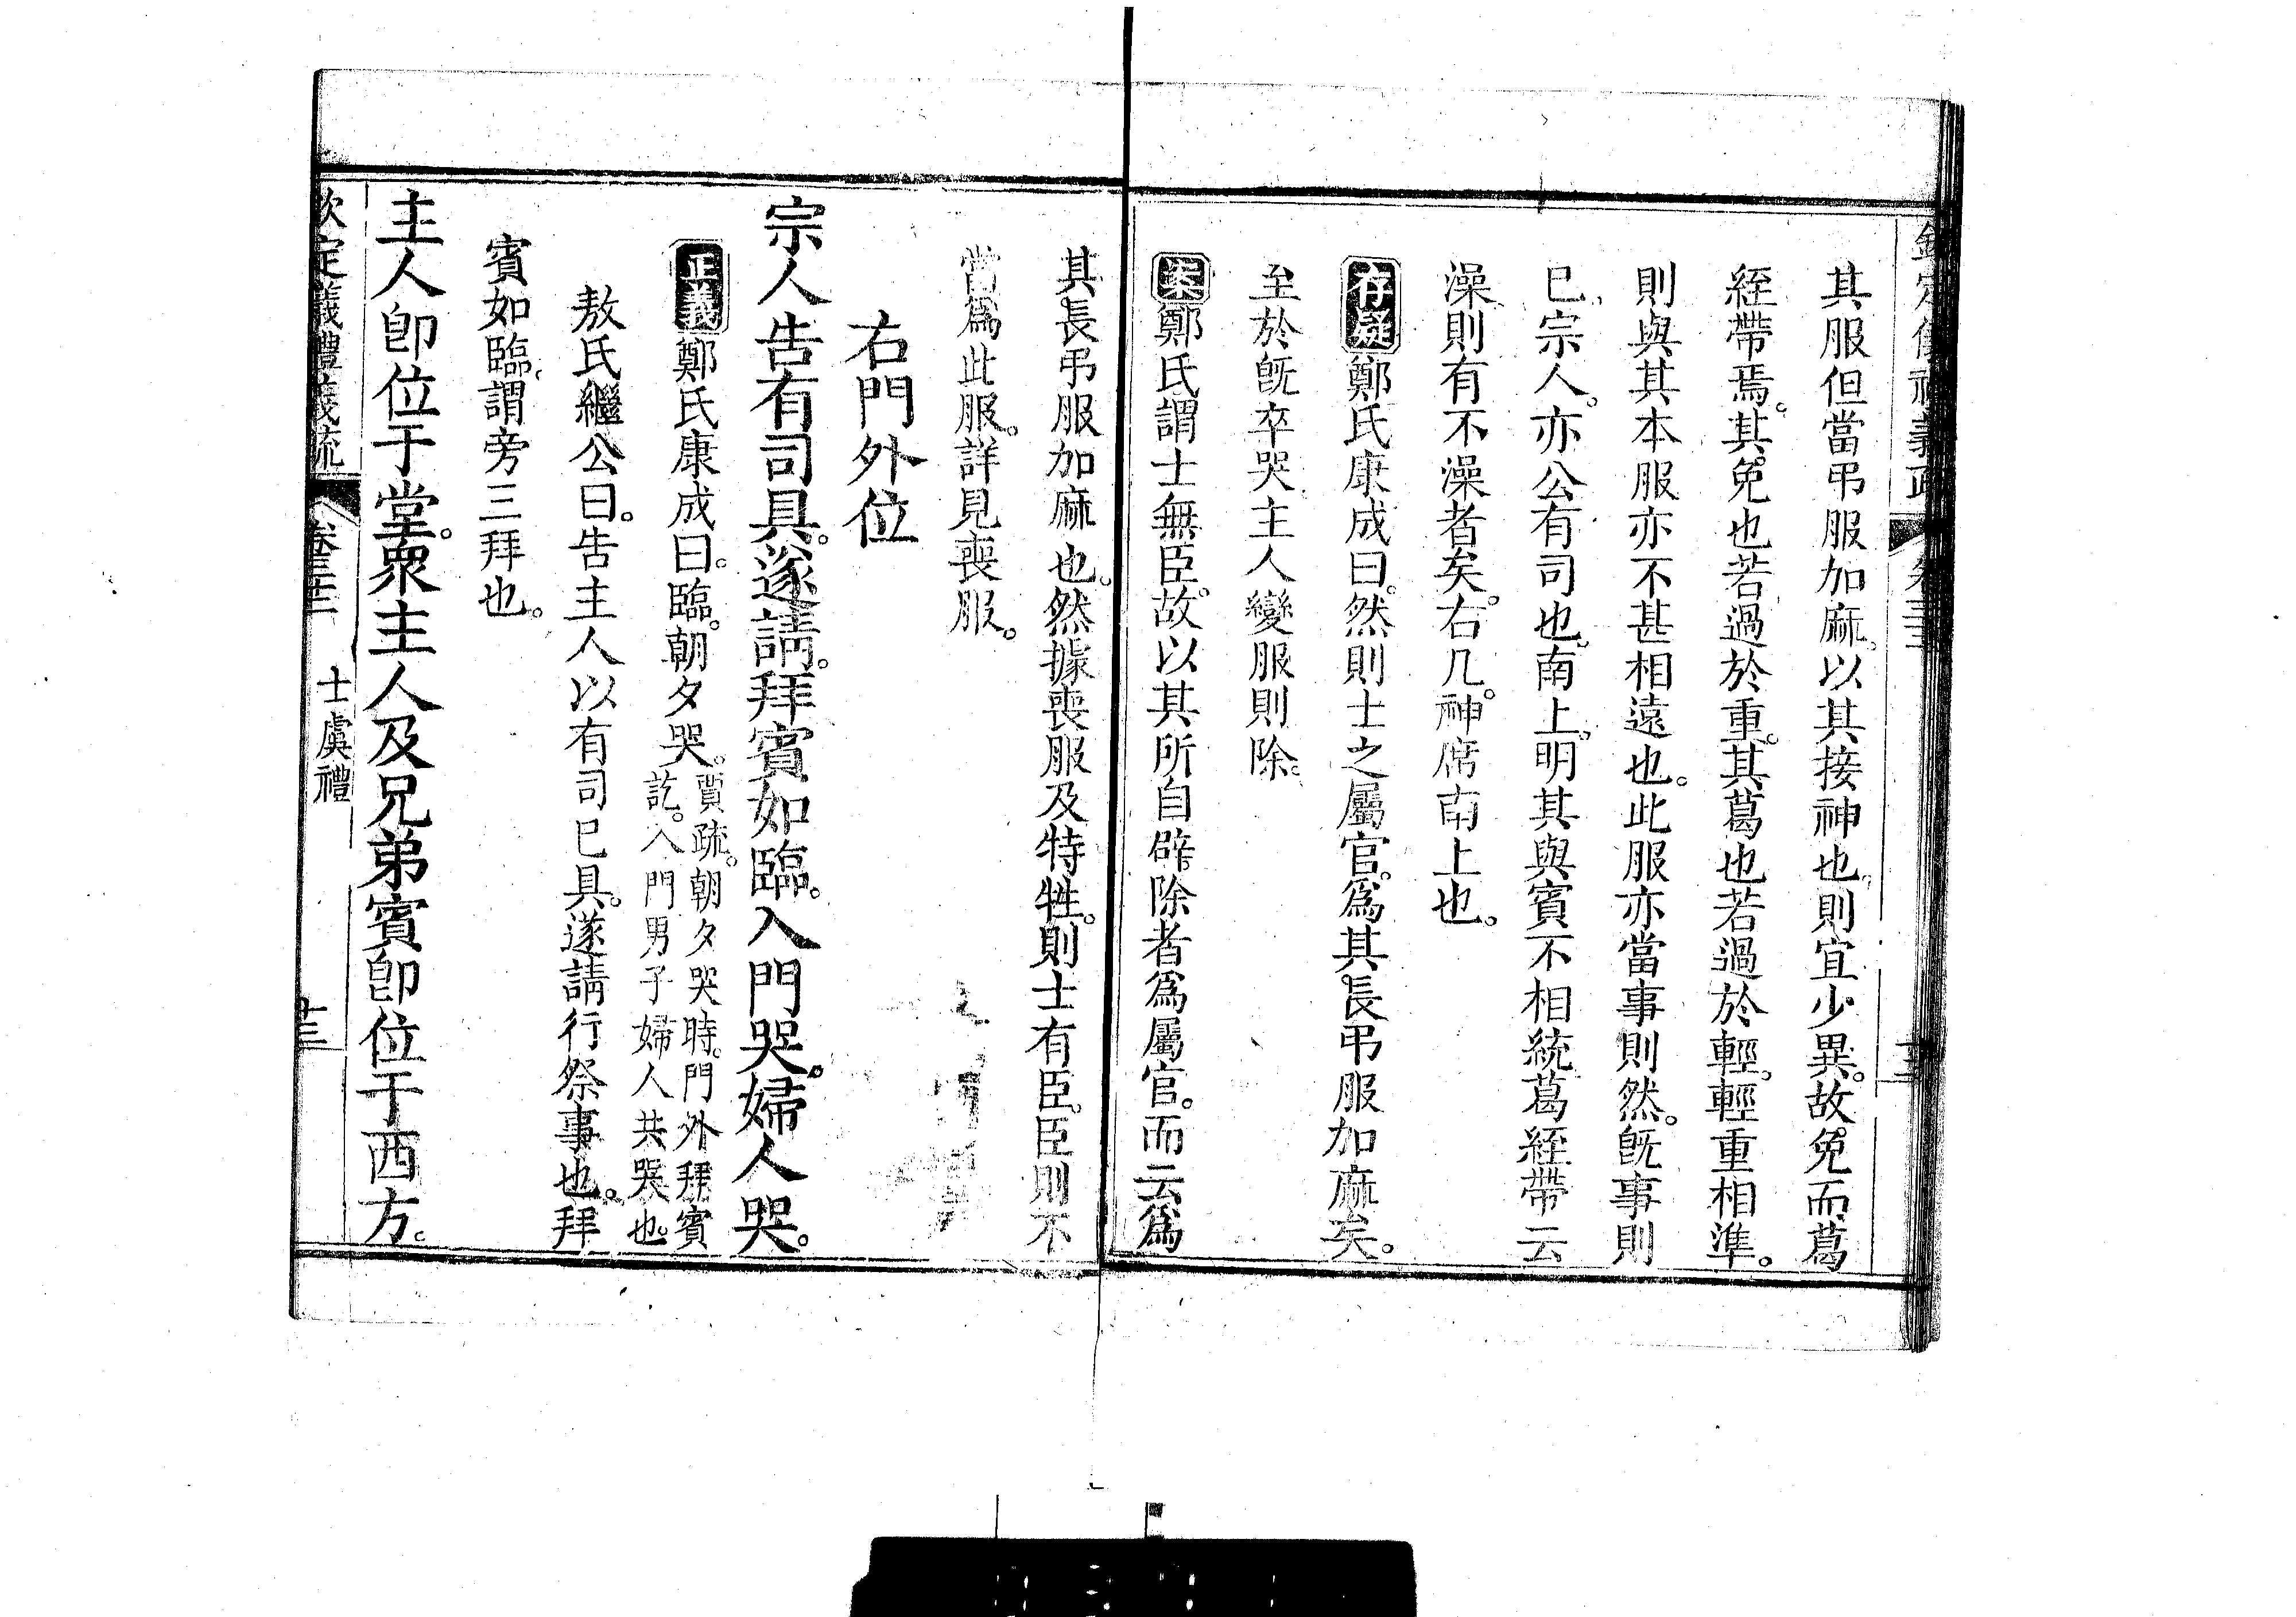 其服但當弔服加麻。以其接神也。則宜少異。故免而葛
絰帶焉。其免也若過於重。其葛也若過於輕。輕重相準。
則與其本服亦不甚相遠也。此服亦當事則然。既事則
已。宗人。亦公有司也。南上。明其與賓不相統葛絰帶云
澡。則有不澡者矣。右几。神席南上也。
存疑鄭氏康成曰。然則士之屬官。爲其長弔服加麻矣。
至於既卒哭主人變服則除。
案鄭氏謂士無臣。故以其所自辟除者爲屬官。而云爲
其長弔服加麻也。然據喪服及特牲。則士有臣。臣則不
當爲此服。詳見喪服。
右門外位
宗人告有司具。遂請。拜賓如臨。入門哭。婦人哭。
正義鄭氏康成曰。臨。朝夕哭。賈疏。朝夕哭時。門外拜賓
訖。入門男子婦人共哭也。
敖氏繼公曰。告主人以有司已具。遂請行祭事也。拜
賓如臨。謂旁三拜也。
主人卽位于堂。衆主人及兄弟賓卽位于西方。
欽定儀禮義疏 卷三十三 士虞禮 十三